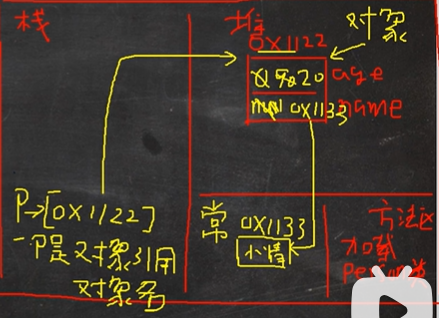 栈
堆
对象
0x1122
20
age
0x1133
name
P→[0x1122]
P是对象引用
对象名
常
0x1133
小倩
方法区
加载